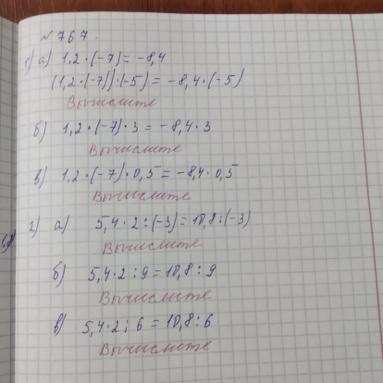 № 767.
1) а) 1,2·(-7) = -8,4
(1,2·(-7))·(-5) = -8,4·(-5)
Вычислите
б) 1,2·(-7)·3 = -8,4·3
Вычислите
в) 1,2·(-7)·0,5 = -8,4·0,5
Вычислите
2) а) 5,4·2:(-3) = 10,8:(-3)
Вычислите
б) 5,4·2:9 = 10,8:9
Вычислите
в) 5,4·2:6 = 10,8:6
Вычислите